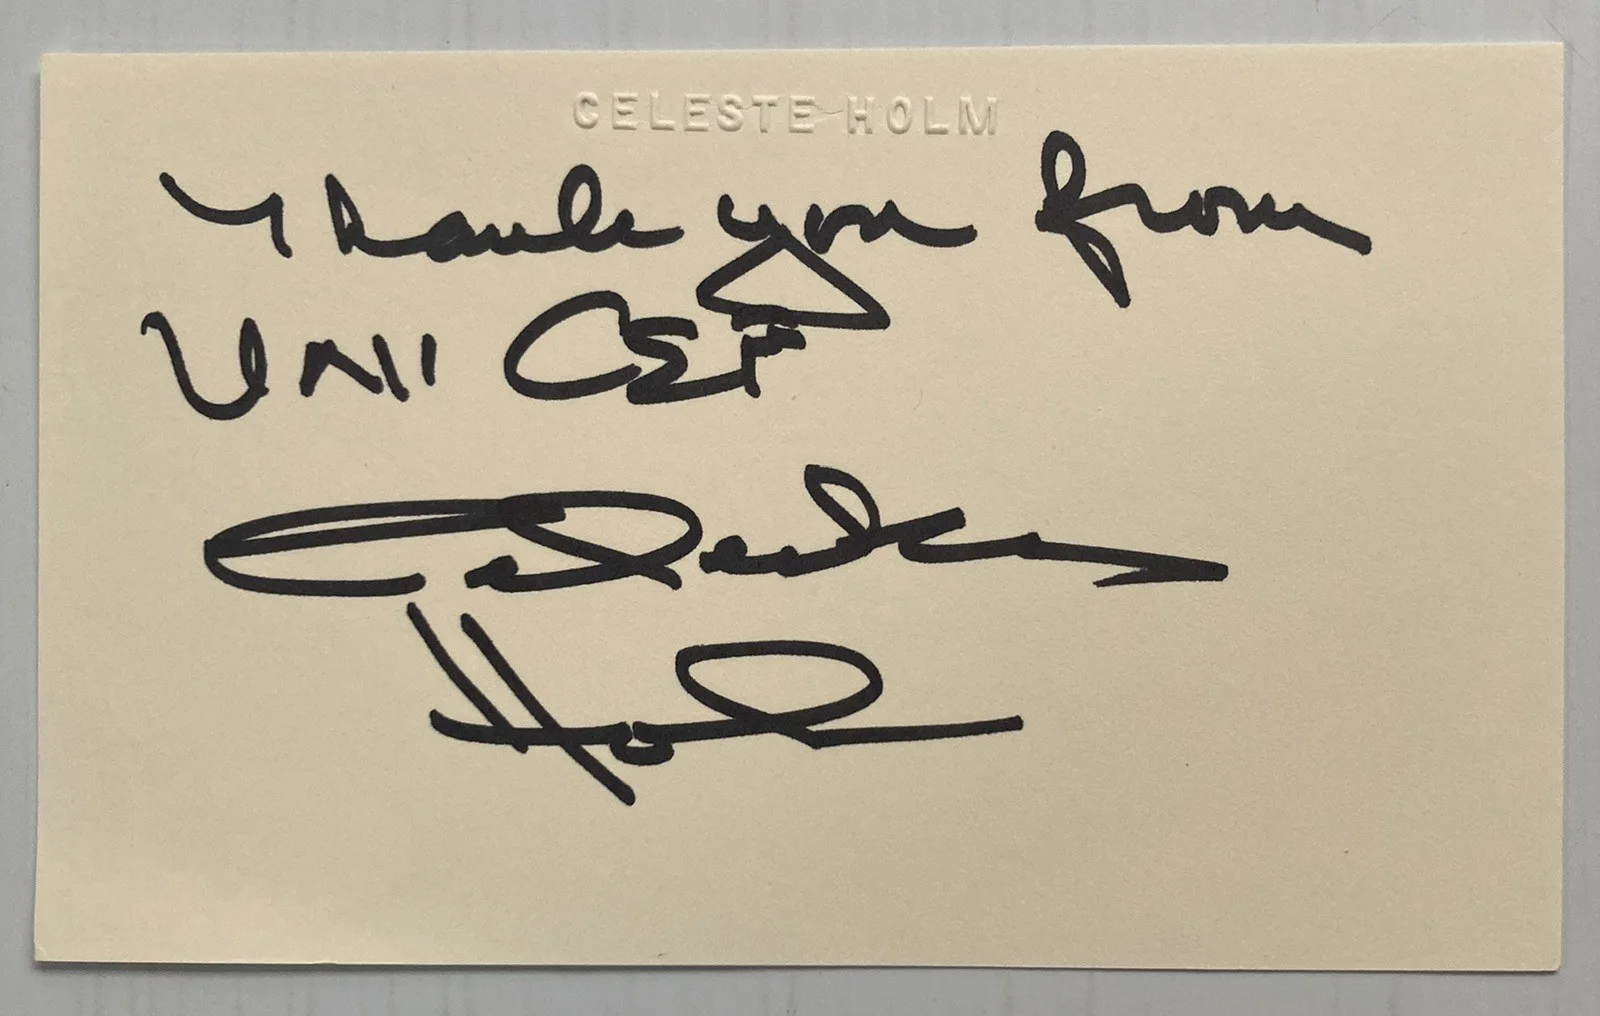 CELESTE HOLM
Thank you from
UNICEF
Celeste
Holm